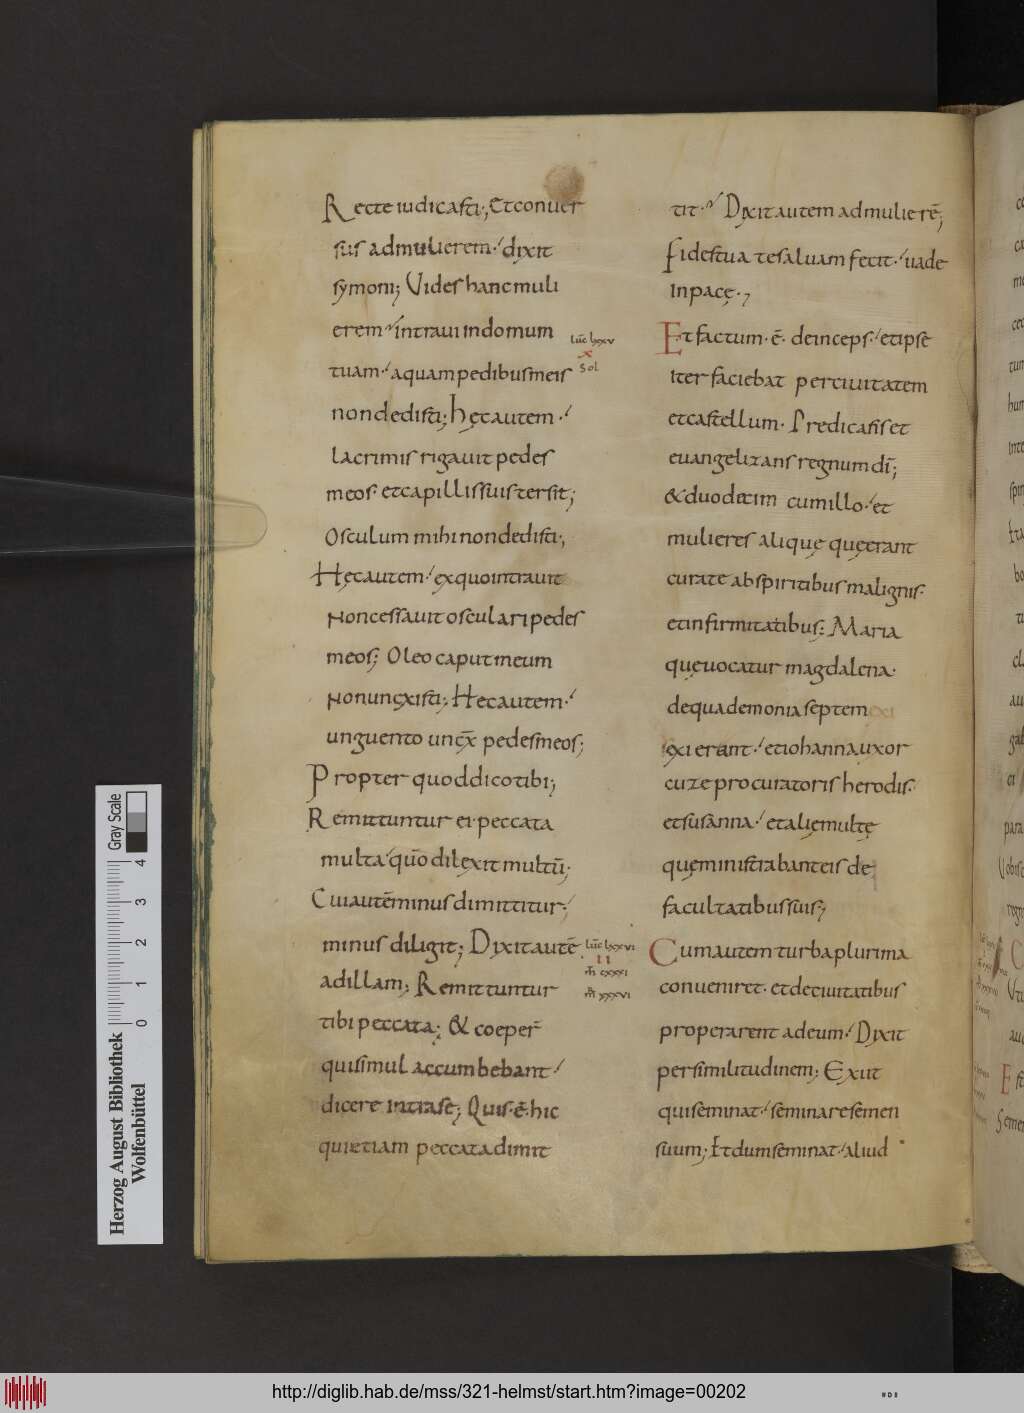 Recte iudicasti; Et conuer
sus ad mulierem. dixit
symoni; Uides hanc muli
erem intraui in domum
tuam. aquam pedibus meis
non dedisti; hęc autem.
lacrimis rigauit pedes
meos. et capillis suis tersit;
Osculum mihi non dedisti;
Hęc autem. ex quo intrauit
Non cessauit osculari pedes
meos; Oleo caput meum
Non unxisti; Hec autem.
unguento unx̄ pedes meos;
Propter quod dico tibi;
Remittuntur ei peccata
multa quō dilexit multū;
Cui autē minus dimittitur.
minus diligit; Dixit autē
ad illam; Remittuntur
tibi peccata; & coeper̄
qui simul accumbebant.
dicere intra se; Quis. ē. hic
qui etiam peccata dimit
luc̄ lxxv
x
Sol
luc̄ lxxxvi
II
m̄ cxxxi
m̄ xxxvi
tit. Dixit autem ad mulierē;
Fides tua te saluam fecit. uade
in pacę.
Et factum. ē. deinceps. et ipse
iter faciebat per ciuitatem
et castellum. Predicans et
euangelizans regnum dī;
& duodecim cum illo. et
mulieres alique que erant
curate ab spiritibus malignis.
et infirmitatibus; Maria
quę uocatur magdalena.
de qua demonia septem
exierant. et iohanna uxor
cuze procuratoris herodis.
et susanna. et alię multę
quę ministrabant eis de
facultatibus suis;
Cum autem turba plurima
conueniret. et de ciuitatibus
properarent ad eum. Dixit
per similitudinem; Exiit
qui seminat. seminare semen
suum; Et dum seminat. aliud
Gray Scale
0 1 2 3 4
Herzog August Bibliothek
Wolfenbüttel
http://diglib.hab.de/mss/321-helmst/start.htm?image=00202